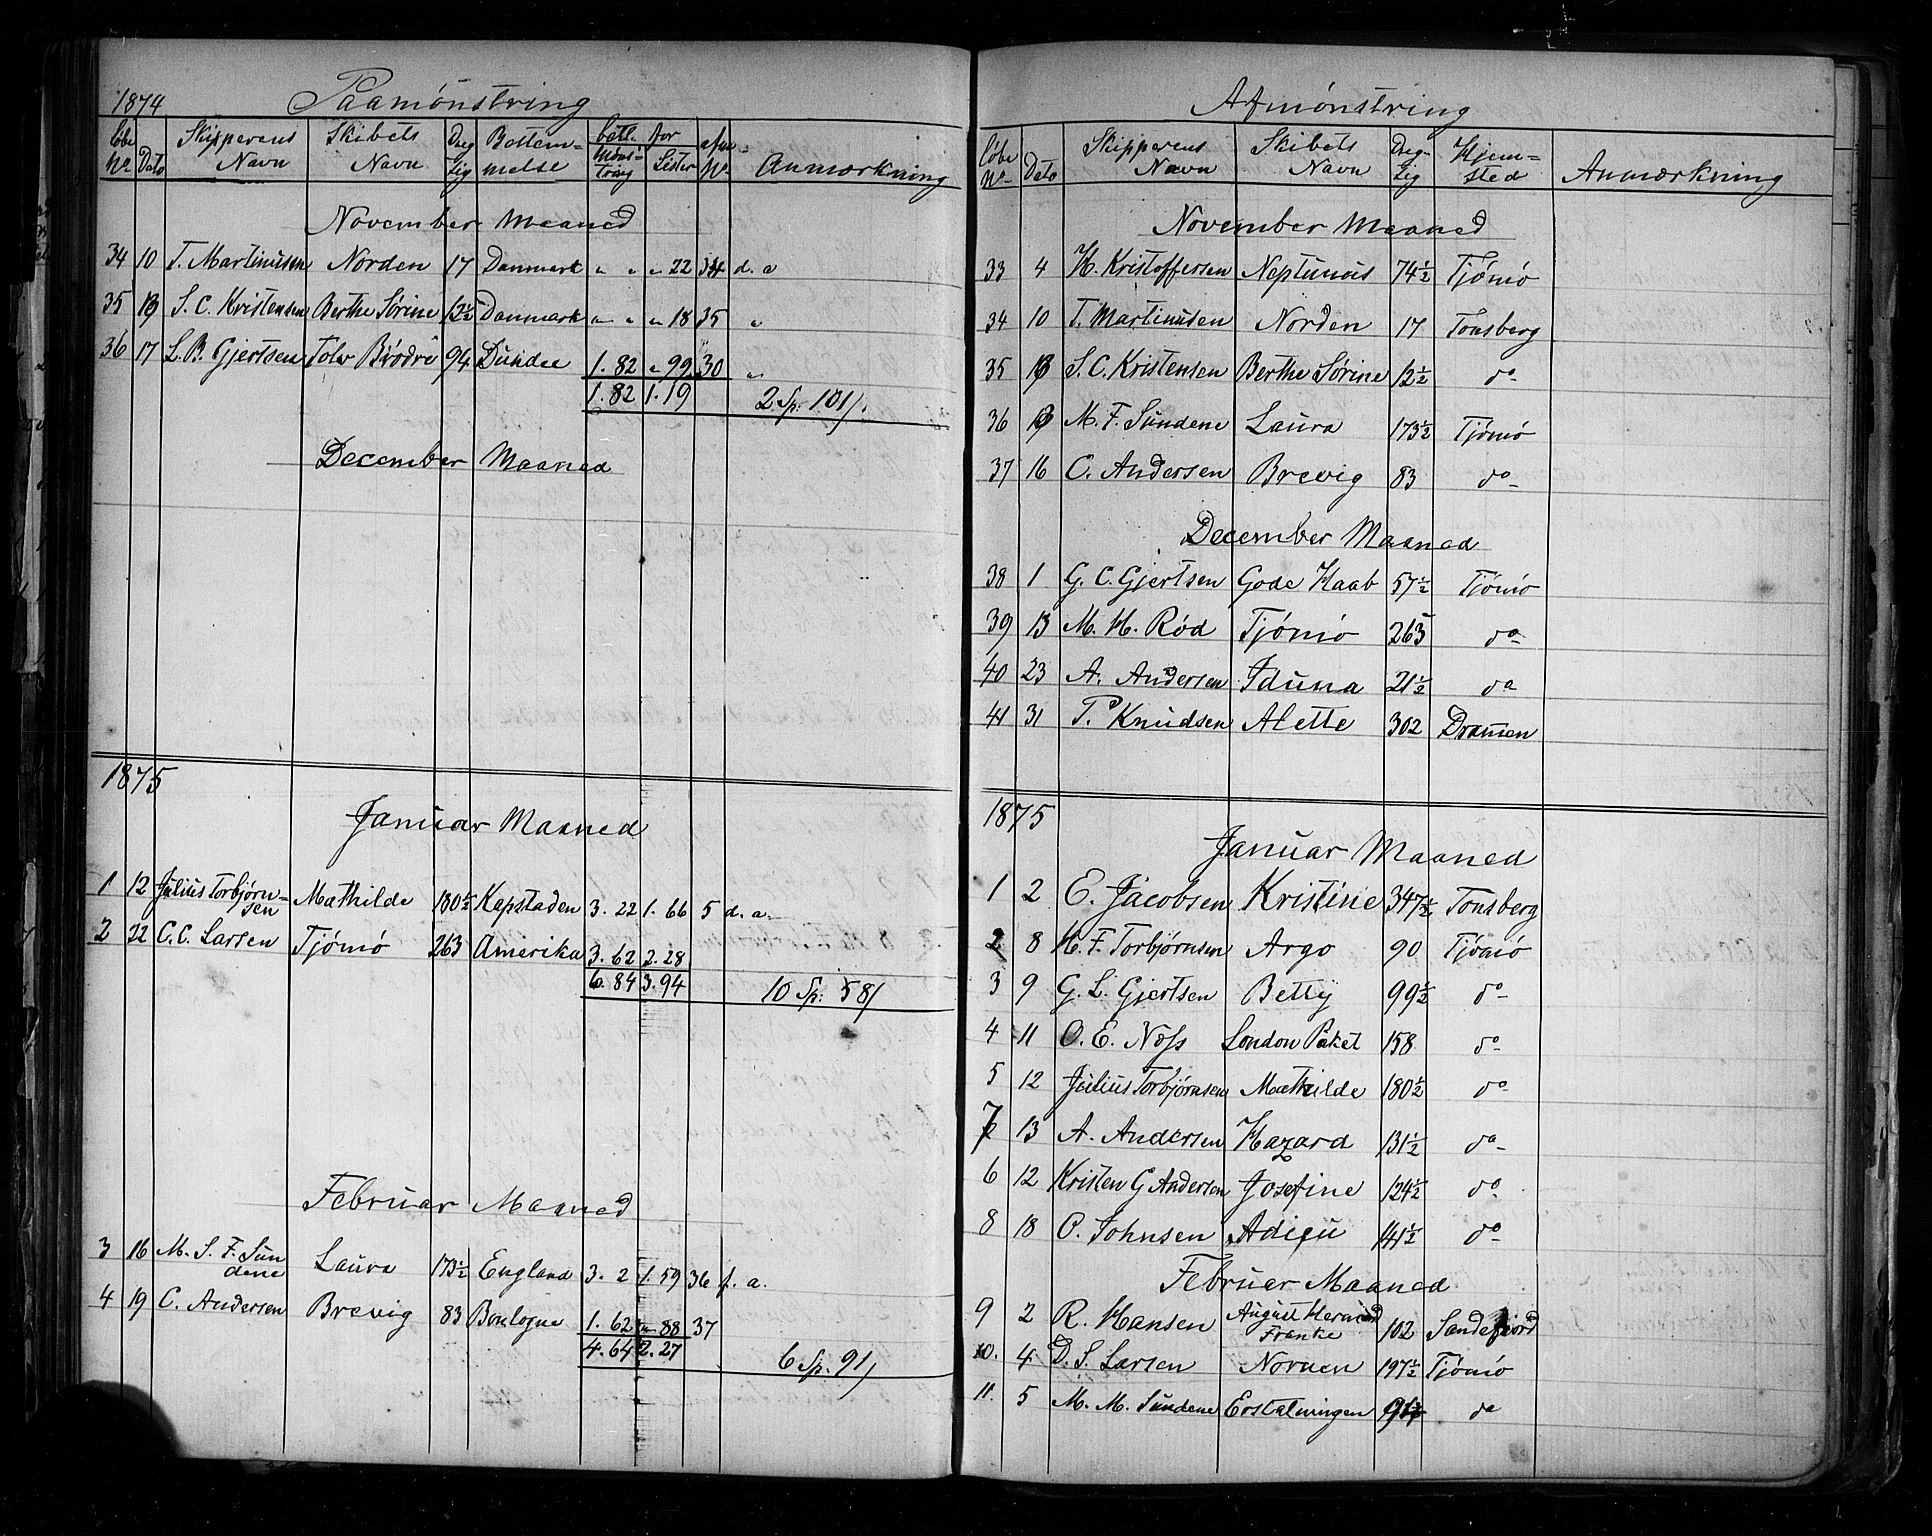 1874 Paamønstring
Løbe No Dato Skipperens Navn Skibets Navn Dreg tig Bestem- melse betl. for Møns- tring Lister afm No Anmærkning
November Maaned
34 10 T. Martinusen Norden 17 Danmark " " " 22 34 d. a
35 13 S. C. Kristensen Berthe Sørine 12½ Danmark " " " 18 35 "
36 17 L. B. Gjertsen Tolv Brødre 94 Dundee 1. 82 " 99 30 "
1. 82 1. 19 2 Sp. 101/.
December Maaned
1875
Januar Maaned
1 12 Julius Torbjørn-
sen Mathilde 180½ Kapstaden 3. 22 1. 66 5 d. a.
2 22 C. C. Larsen Tjømø 263 Amerika 3. 62 2. 28
6. 84 3. 94 10 Sp: 58/
Februar Maaned
3 16 M. S. F. Sun
dene Laura 173½ England 3. 2 1. 59 36 f. a.
4 19 C. Andersen Brevig 83 Boulogne 1. 62 " 88 37
4. 64 2. 27 6 Sp. 91/
Afmønstring
Løbe No Dato Skipperens Navn Skibets Navn Dreg- tig Hjem- sted Anmærkning
November Maaned
33 4 H. Kristoffersen Neptunus 74½ Tjømø
34 10 T. Martinusen Norden 17 Tønsberg
35 13 S. C. Kristensen Berthe Sørine 12½ do
36 13 M. F. Sundene Laura 173½ Tjømø
37 16 C. Andersen Brevig 83 do
December Maaned
38 1 G. C. Gjertsen Gode Haab 57½ Tjømø
39 13 M. H. Rød Tjømø 263 do
40 23 A. Andersen Iduna 21½ do
41 31 P. Knudsen Alette 302 Dramen
1875
Januar Maaned
1 2 E. Jacobsen Kristine 347½ Tønsberg
2 8 H. F. Torbjørnsen Argo 90 Tjømø
3 9 G. L. Gjertsen Betty 99½ do
4 11 O. E. Næss London Paket 158 do
5 12 Julius Torbjørnsen Mathilde 180½ do
7 13 A. Andersen Hazard 131½ do
6 12 Kristen G Andersen Josefine 124½ do
8 18 O. Johnsen Adieu 141½ do
Februar Maaned
9 2 R. Hansen August Herman
Franke 102 Sandefjord
10. 4 D. S. Larsen Noruen 197½ Tjømø
11. 5 M. M. Sundene do